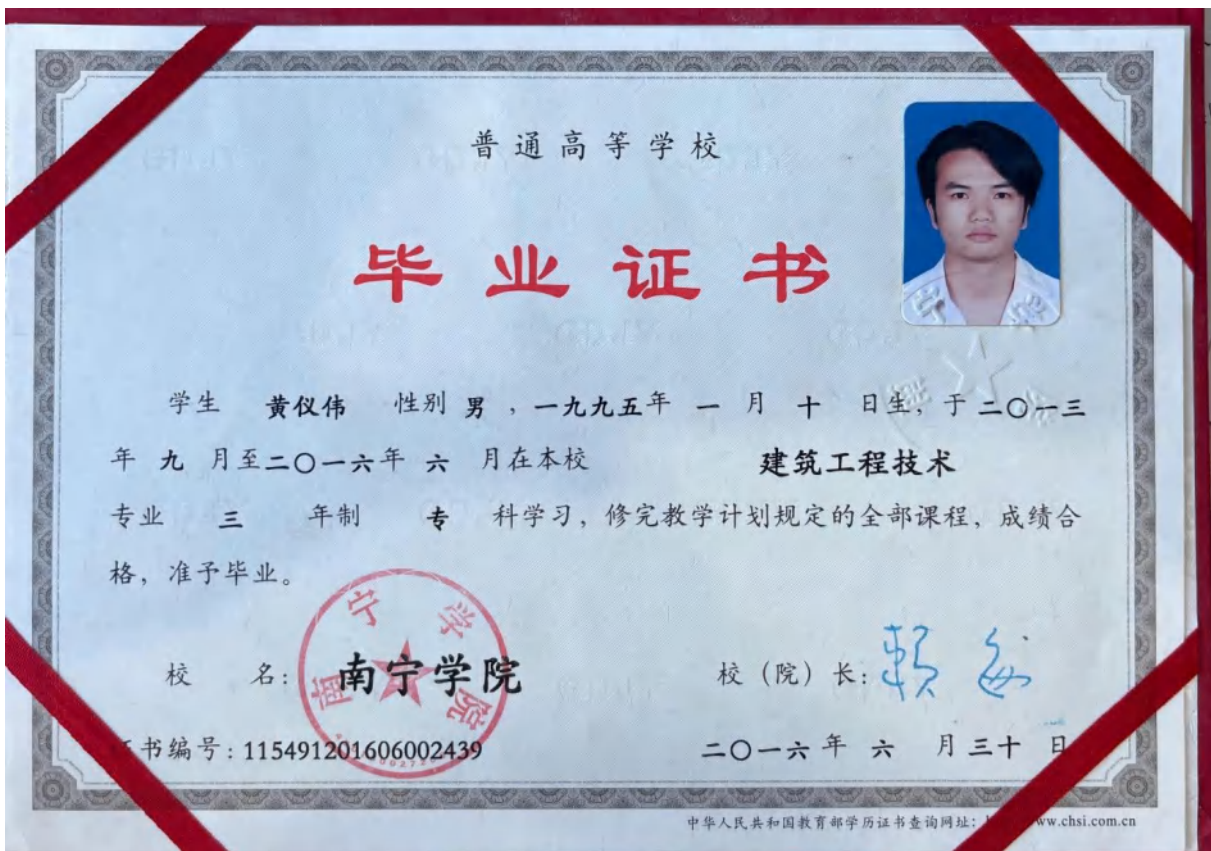 普通高等学校
毕业证书
学生 黄仪伟 性别 男 ，一九九五年 一 月 十 日生，于二〇一三
年 九 月至二〇一六年 六 月在本校 建筑工程技术
专业 三 年制 专 科学习，修完教学计划规定的全部课程，成绩合
格，准予毕业。
校 名：南宁学院
校（院）长：
南宁学院
书编号：115491201606002439
二〇一六 年 六 月 三十 日
中华人民共和国教育部学历证书查询网址： ww.chsi.com.cn